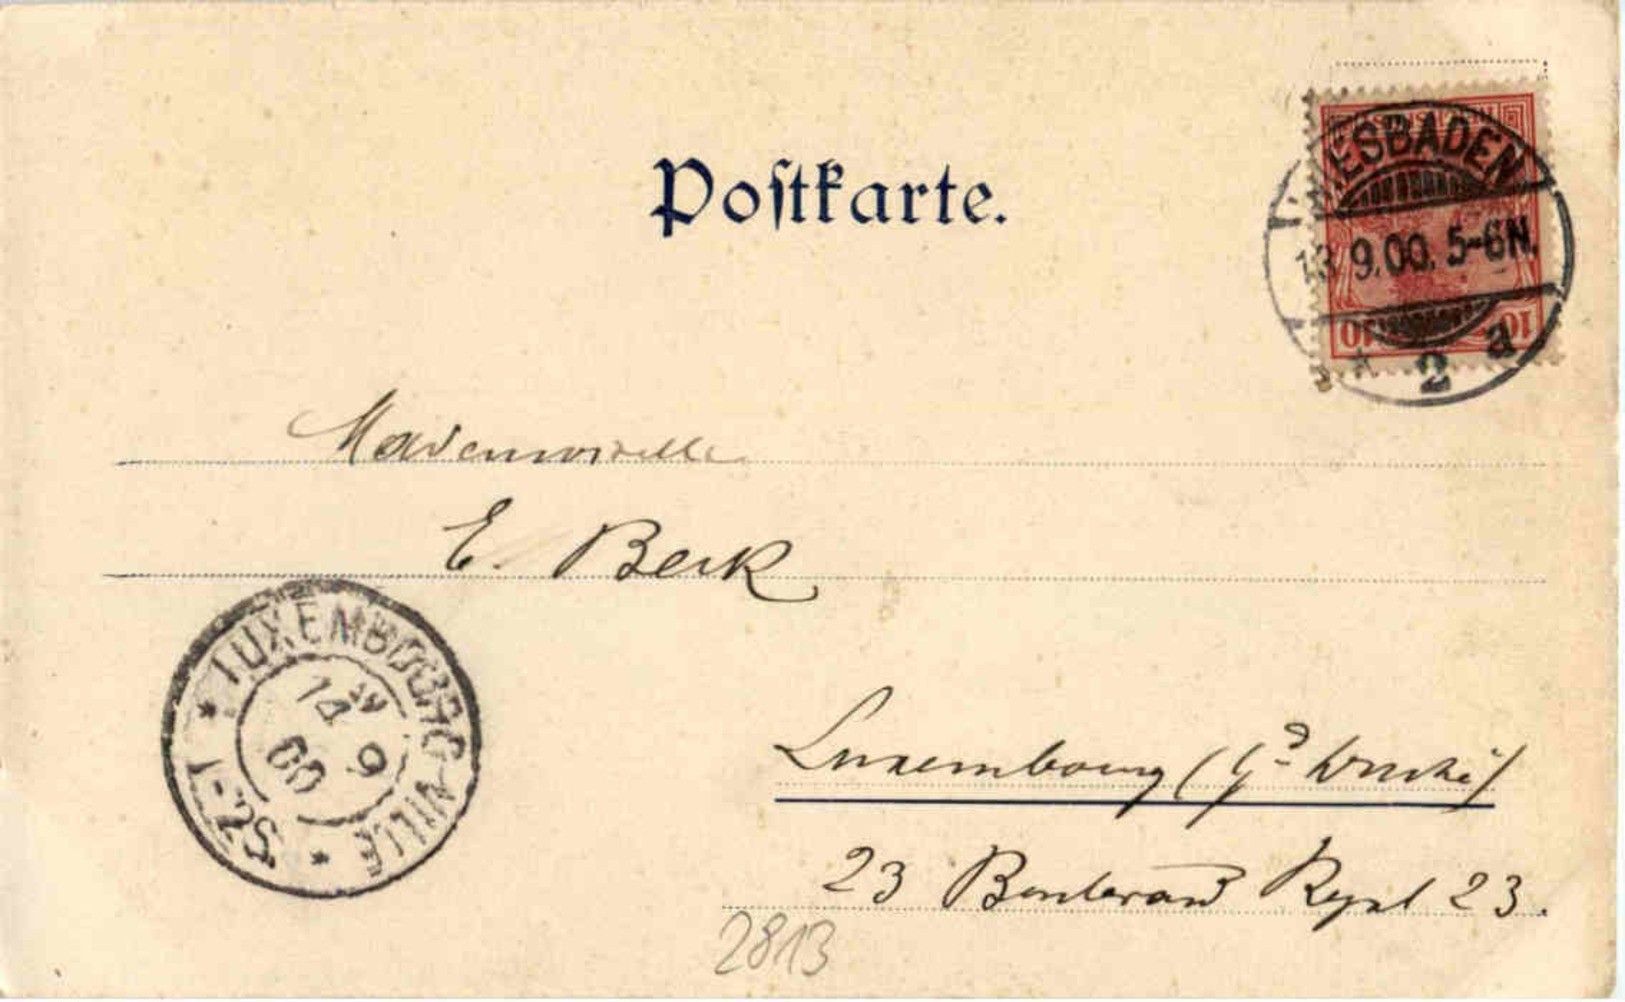 Postkarte.
WIESBADEN
13 9.00. 5-6N.
10 10
* 2 a
Mademoiselle
E. Beck
LUXEMBOURG-VILLE
14 9
00
Luxembourg (Gd Duché)
23 Boulevard Royal 23.
2813